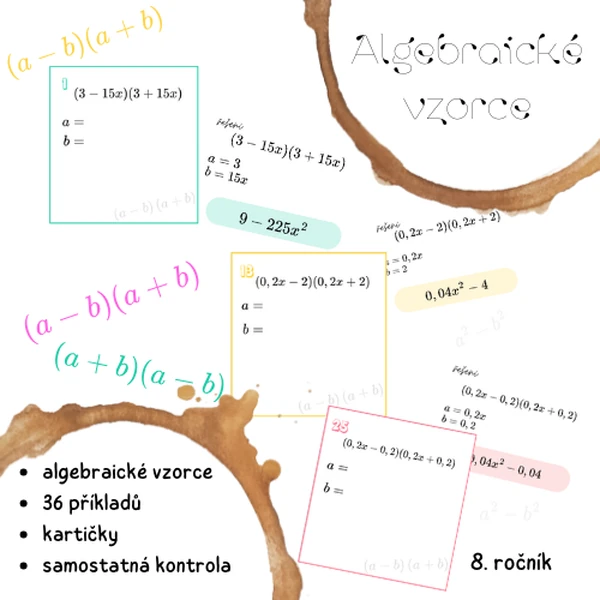 (a − b)(a + b)
Algebraické
vzorce
1
(3 − 15x)(3 + 15x)
a =
b =
(a − b)(a + b)
řešení
(3 − 15x)(3 + 15x)
a = 3
b = 15x
9 − 225x²
řešení
(0, 2x − 2)(0, 2x + 2)
a = 0, 2x
b = 2
0, 04x² − 4
a² − b²
13
(0, 2x − 2)(0, 2x + 2)
a =
b =
(a − b)(a + b)
(a − b)(a + b)
(a + b)(a − b)
řešení
(0, 2x − 0, 2)(0, 2x + 0, 2)
a = 0, 2x
b = 0, 2
0, 04x² − 0, 04
a² − b²
25
(0, 2x − 0, 2)(0, 2x + 0, 2)
a =
b =
(a − b)(a + b)
• algebraické vzorce
• 36 příkladů
• kartičky
• samostatná kontrola
8. ročník